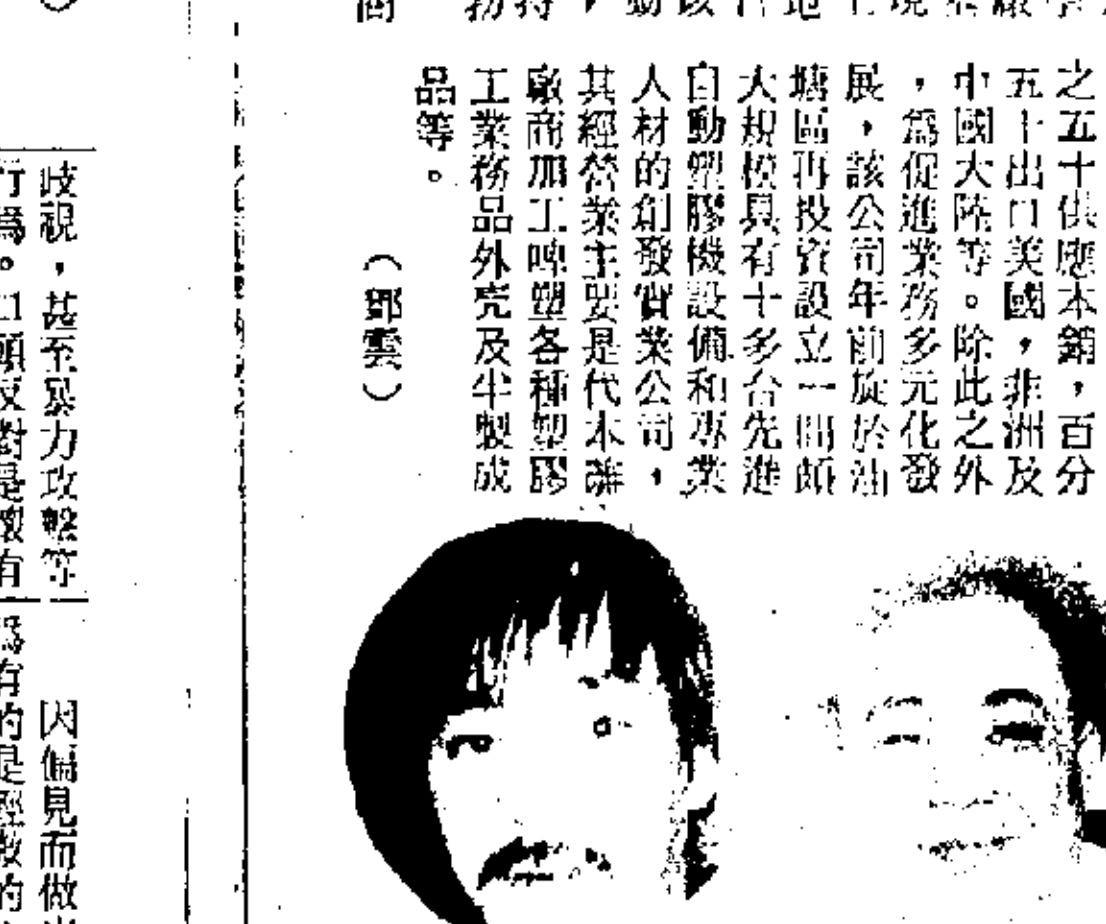 之五十供應本銷，百分
五十出口美國，非洲及
中國大陸等。除此之外
，爲促進業務多元化發
展，該公司年前旋於油
塘區再投資設立一間頗
大規模具有十多台先進
自動塑膠機設備和專業
人材的創發實業公司，
其經營業主要是代本港
廠商加工啤塑各種塑膠
工業務品外壳及半製成
品等。
（鄧雲）
歧視，甚至暴力攻擊等
行爲。口頭反對是最有
因偏見而做
爲有的是經教的